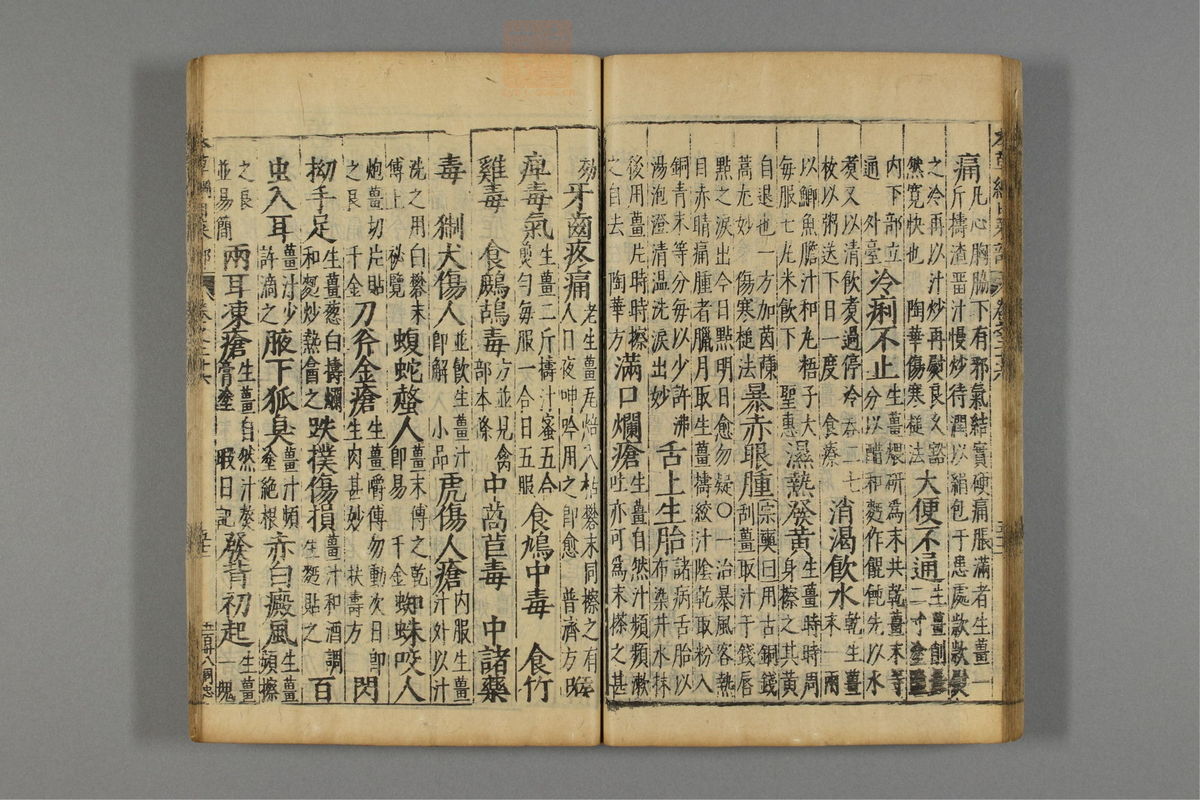 痛凡心胸脇下有邪氣結實硬痛脹滿者生薑一斤擣渣畱汁慢炒待潤以絹包于患處款款熨
之冷再以汁炒再熨良久豁然寛快也陶華傷寒槌法大便不通生薑削長二寸塗鹽
內下部立通外臺冷痢不止生薑煨研爲末共乾薑末等分以醋和麪作餛飩先以水
煑又以清飲煑過停冷吞二七枚以粥送下日一度食療消渴飲水乾生薑末一兩
以鯽魚膽汁和丸梧子大每服七丸米飲下聖惠濕熱發黃生薑時時周身擦之其黃
自退也一方加茵蔯蒿尤妙傷寒槌法暴赤眼腫宗奭曰用古銅錢刮薑取汁于錢唇
點之淚出今日點明日愈勿疑〇一治暴風客熱目赤睛痛腫者臘月取生薑擣絞汁陰乾取粉入
銅青末等分每以少許沸湯泡澄清温洗淚出妙舌上生胎諸病舌胎以布染井水抹
後用薑片時時擦之自去陶華方滿口爛瘡生薑自然汁頻頻漱吐亦可爲末擦之甚
効牙齒疼痛老生薑瓦焙入枯礬末同擦之有人日夜呻吟用之卽愈普濟方喉
痺毒氣生薑二斤擣汁蜜五合煎勻每服一合日五服食鳩中毒食竹
雞毒食鷓鴣毒方並見禽部本條中萵苣毒中諸藥
毒猘犬傷人並飲生薑汁卽解小品虎傷人瘡內服生薑汁外以汁
洗之用白礬末傅上秘覽蝮蛇螫人薑末傅之乾卽易千金蜘蛛咬人
炮薑切片貼之良千金刀斧金瘡生薑嚼傅勿動次日卽生肉甚妙扶壽方閃
拗手足生薑葱白擣爛和麪炒熱盦之跌撲傷損薑汁和酒調生麪貼之百
虫入耳薑汁少許滴之腋下狐臭薑汁頻塗絕根赤白癜風生薑頻擦
之良並易簡兩耳凍瘡生薑自然汁熬膏塗暇日記發背初起生薑一塊